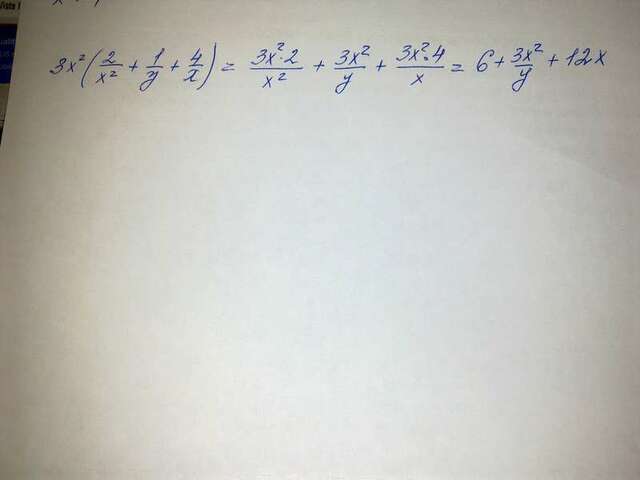 3x²(2/x² + 1/y + 4/x) = 3x²·2/x² + 3x²/y + 3x²·4/x = 6 + 3x²/y + 12x